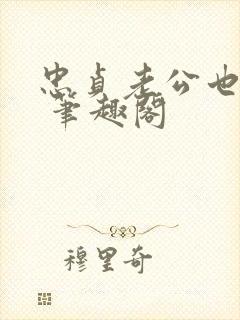 忠贞老公也
笔趣阁
穆里奇